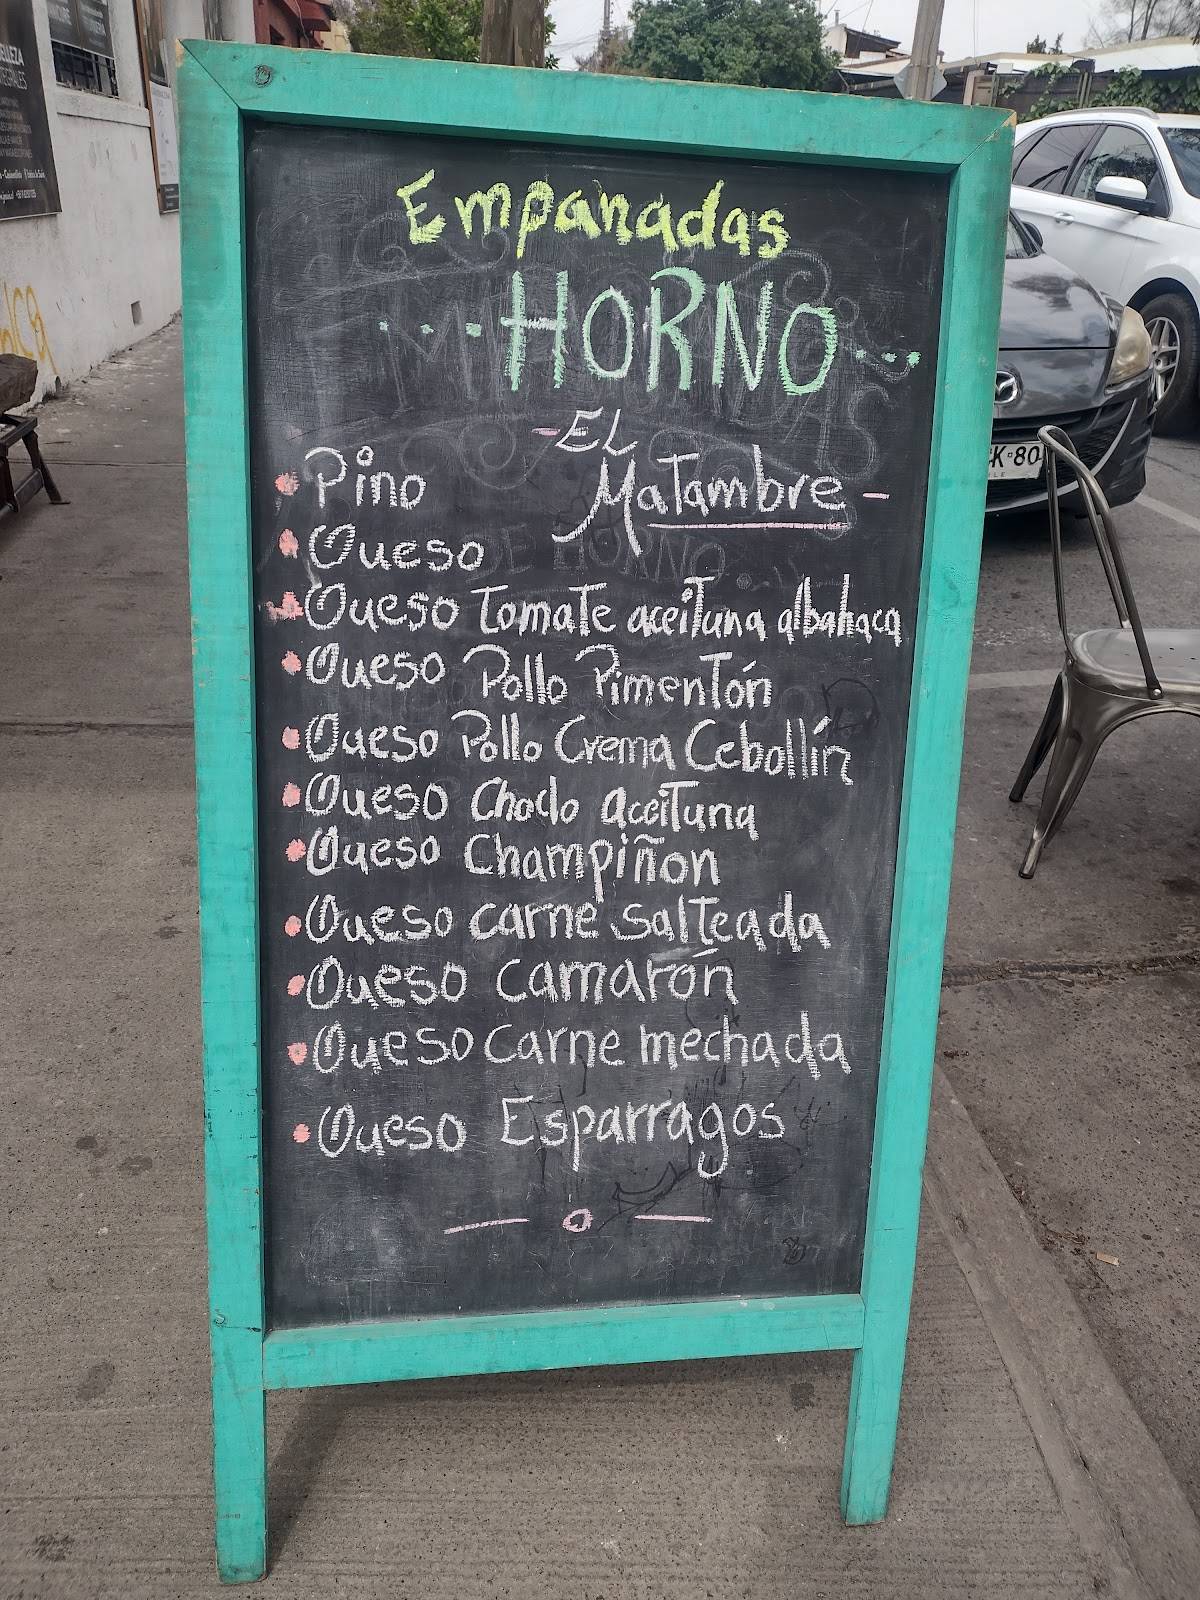 Empanadas
HORNO
- EL
Matambre -
Pino
Queso
Queso tomate aceituna albahaca
Queso Pollo Pimentón
Queso Pollo Crema Cebollín
Queso Choclo aceituna
Queso Champiñon
Queso carne salteada
Queso camarón
Queso carne mechada
Queso Esparragos
DE HORNO